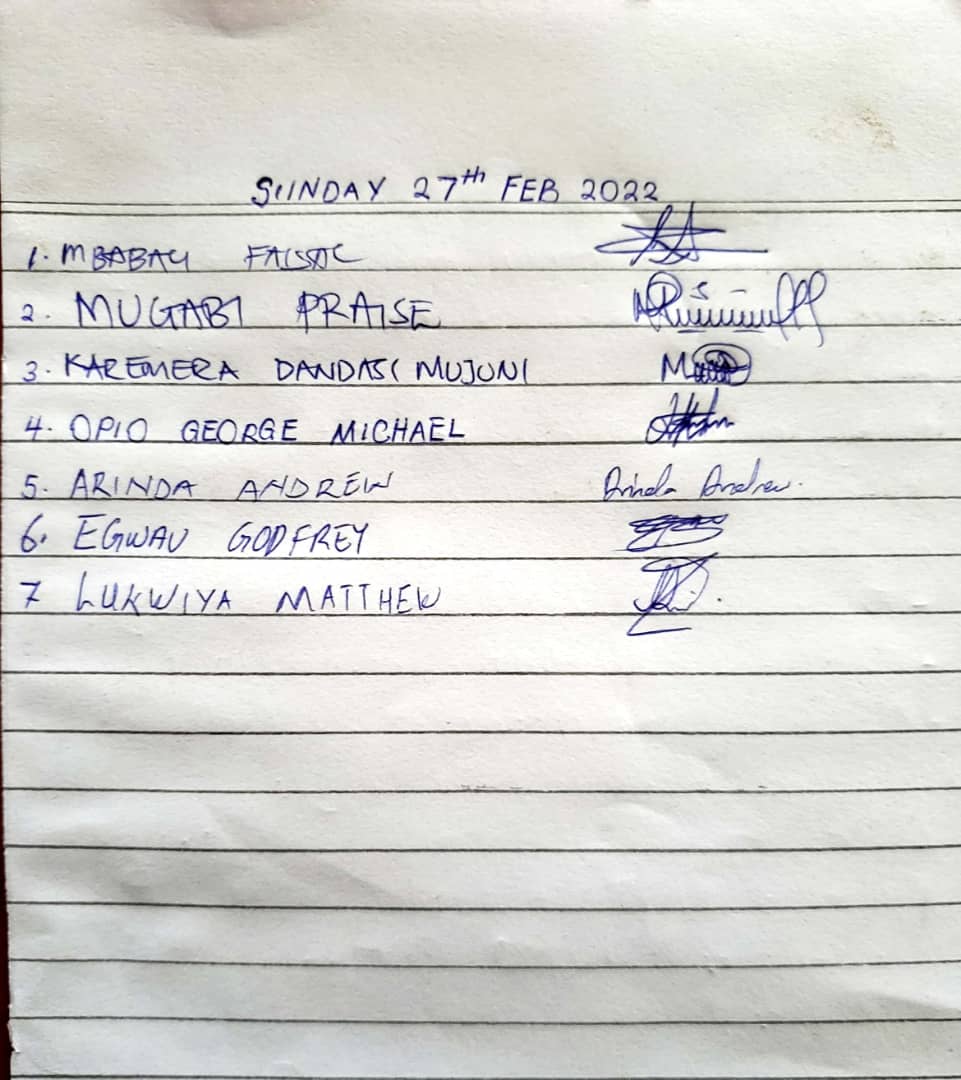 SUNDAY 27th FEB 2022
1. MBABALI
2. MUGABI PRAISE
3. KAREMERA DANDASI MUJUNI
4. OPIO GEORGE MICHAEL
5. ARINDA ANDREW Arinda Andrew.
6. EGWAU GODFREY
7 LUKWIYA MATTHEW